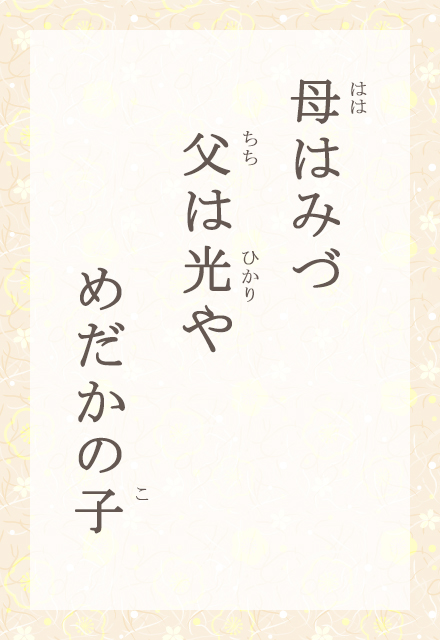 母はみづ
父は光や
めだかの子
はは
ちち
ひかり
こ